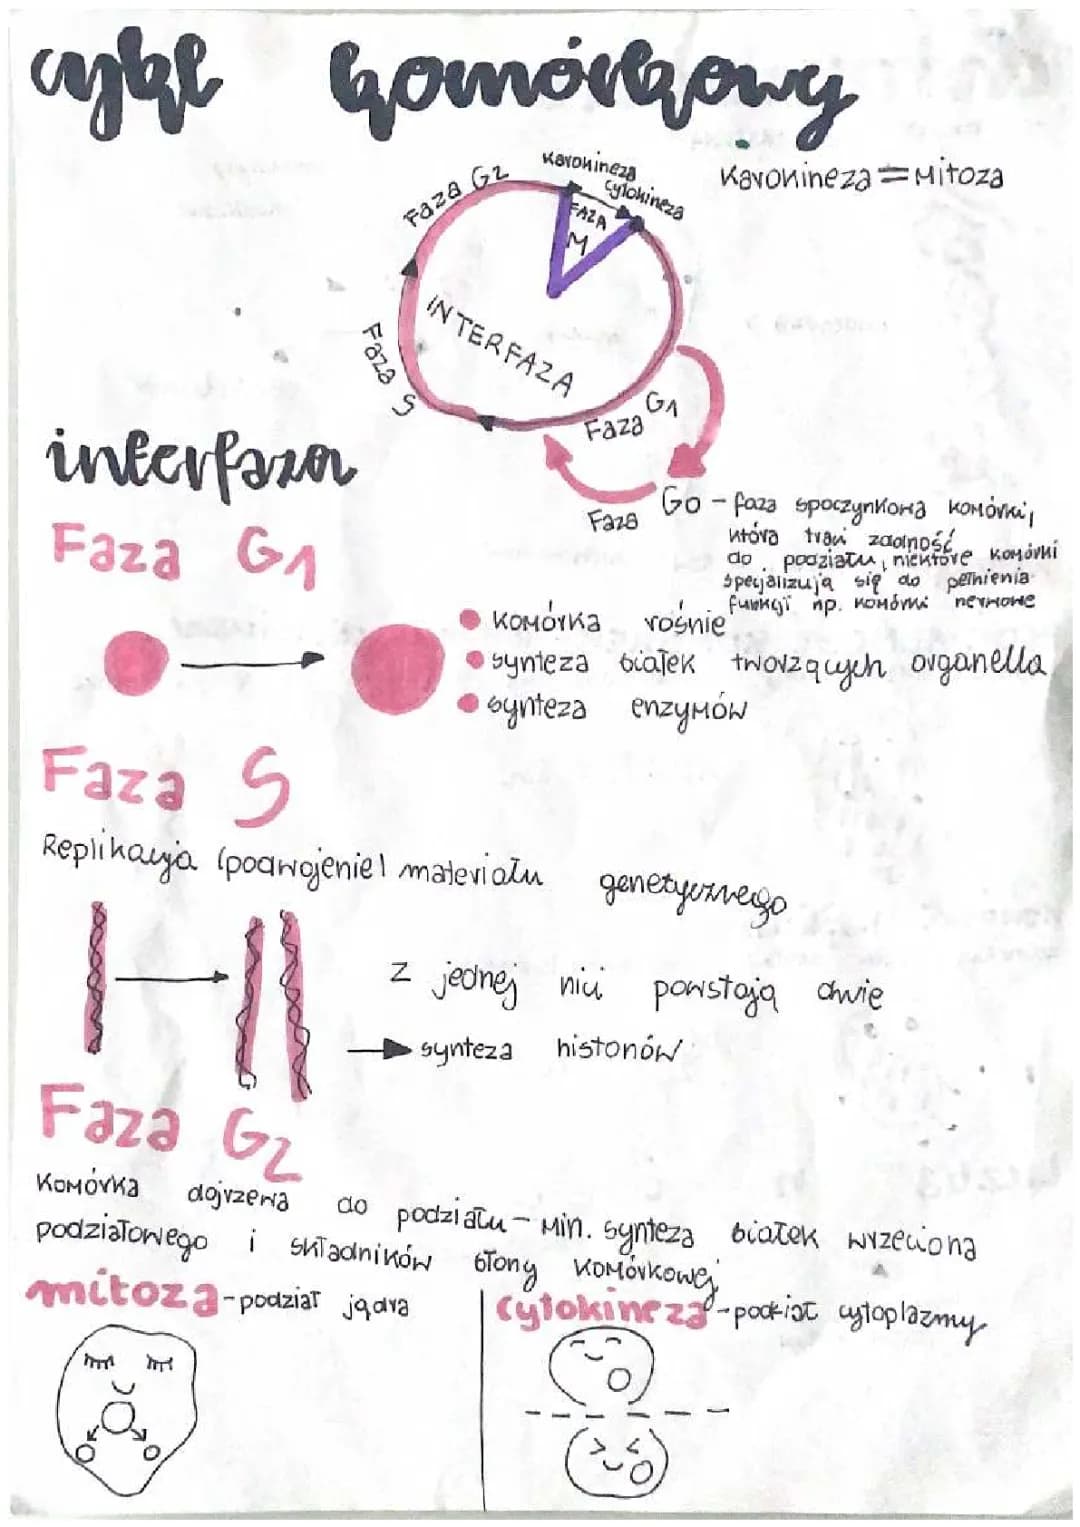 cykl komórkowy
Karokineza = Mitoza
Karokineza
Cytokineza
FAZA
M
Faza G2
INTERFAZA
Faza S
Faza G1
interfaza
Faza G0 - faza spoczynkowa komórki,
która traci zdolność
do podziału, niektóre komórki
specjalizują się do pełnienia
funkcji np. komórki nerwowe
Faza G1
komórka rośnie
synteza białek tworzących organella
synteza enzymów
Faza S
Replikacja (podwojenie) materiału genetycznego
z jednej nici powstają dwie
synteza histonów
Faza G2
Komórka dojrzewa do podziału - min. synteza białek wrzeciona
podziałowego i składników błony komórkowej
mitoza - podział jądra
cytokineza - podział cytoplazmy